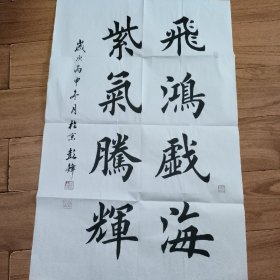 飛鴻戲海
紫氣騰輝
歲次丙申冬月於京